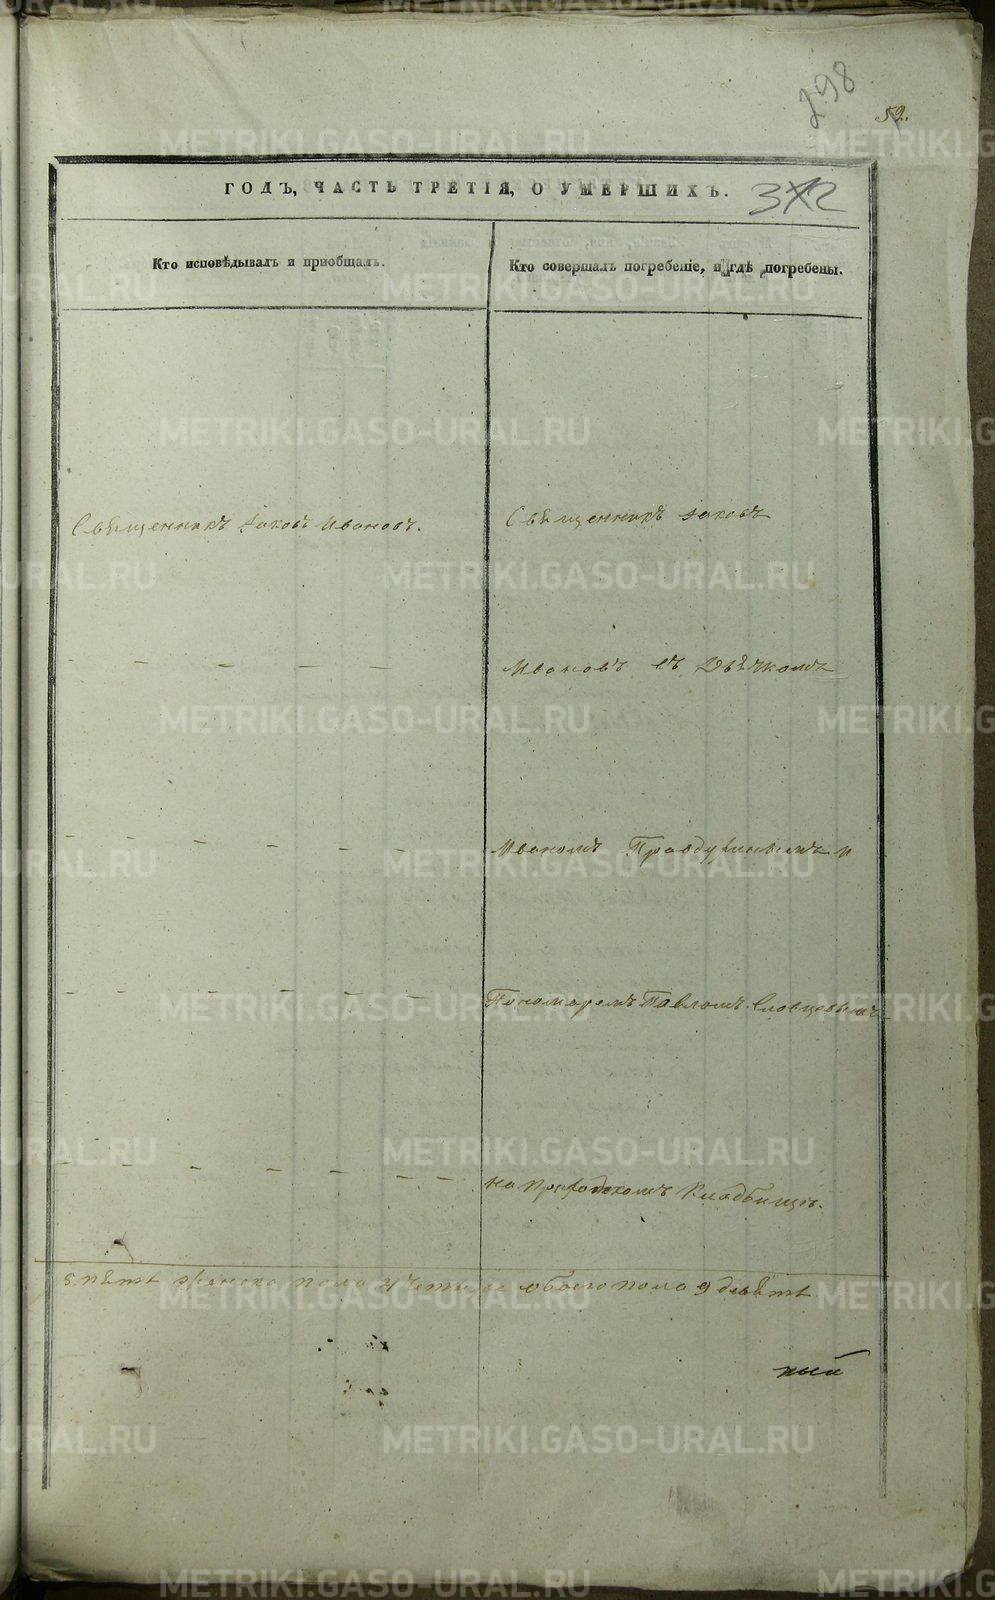 298
59.
ГОДЪ, ЧАСТЬ ТРЕТІЯ, О УМЕРШИХЪ.
Кто исповѣдывалъ и пріобщалъ.
Кто совершалъ погребеніе, и гдѣ погребены.
Священникъ Іаковъ Ивановъ.
Священникъ Іаковъ
Ивановъ съ Дьячкомъ
Иваномъ Правдухинымъ и
Пономаремъ Павломъ Словцовымъ
на приходскомъ кладбищѣ.
5 пять женска пола 4 четыре обоего пола 9 девять
ный
METRIKI.GASO-URAL.RU